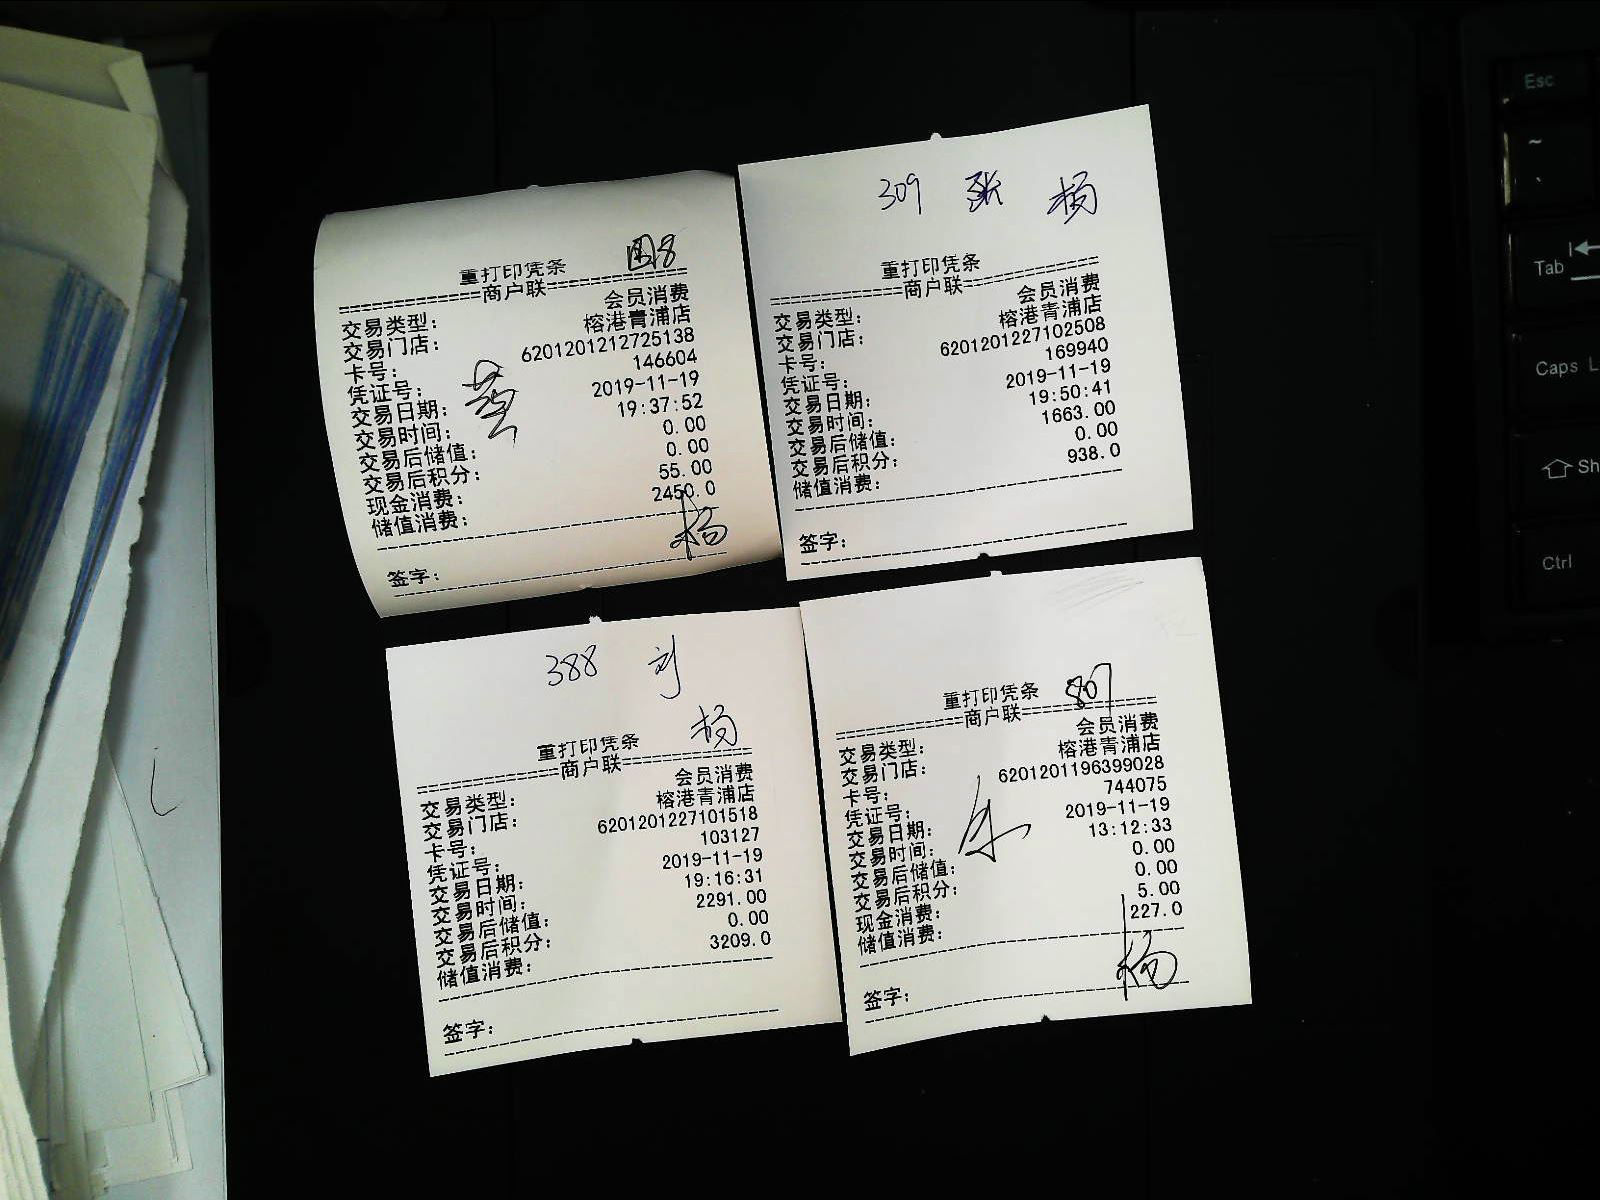 围8
重打印凭条
================商户联================
交易类型: 会员消费
交易门店: 榕港青浦店
卡号: 6201201212725138
凭证号: 146604
交易日期: 2019-11-19
交易时间: 19:37:52
交易后储值: 0.00
交易后积分: 0.00
现金消费: 55.00
储值消费: 2450.0
杨
签字:
309 张 杨
重打印凭条
================商户联================
交易类型: 会员消费
交易门店: 榕港青浦店
卡号: 6201201227102508
凭证号: 169940
交易日期: 2019-11-19
交易时间: 19:50:41
交易后储值: 1663.00
交易后积分: 0.00
储值消费: 938.0
签字:
388 刘
杨
重打印凭条
================商户联================
交易类型: 会员消费
交易门店: 榕港青浦店
卡号: 6201201227101518
凭证号: 103127
交易日期: 2019-11-19
交易时间: 19:16:31
交易后储值: 2291.00
交易后积分: 0.00
储值消费: 3209.0
签字:
807
重打印凭条
================商户联================
交易类型: 会员消费
交易门店: 榕港青浦店
卡号: 6201201196399028
凭证号: 744075
交易日期: 2019-11-19
交易时间: 13:12:33
交易后储值: 0.00
交易后积分: 0.00
现金消费: 5.00
储值消费: 227.0
杨
签字:
Esc
~
Tab
Caps L
Sh
Ctrl